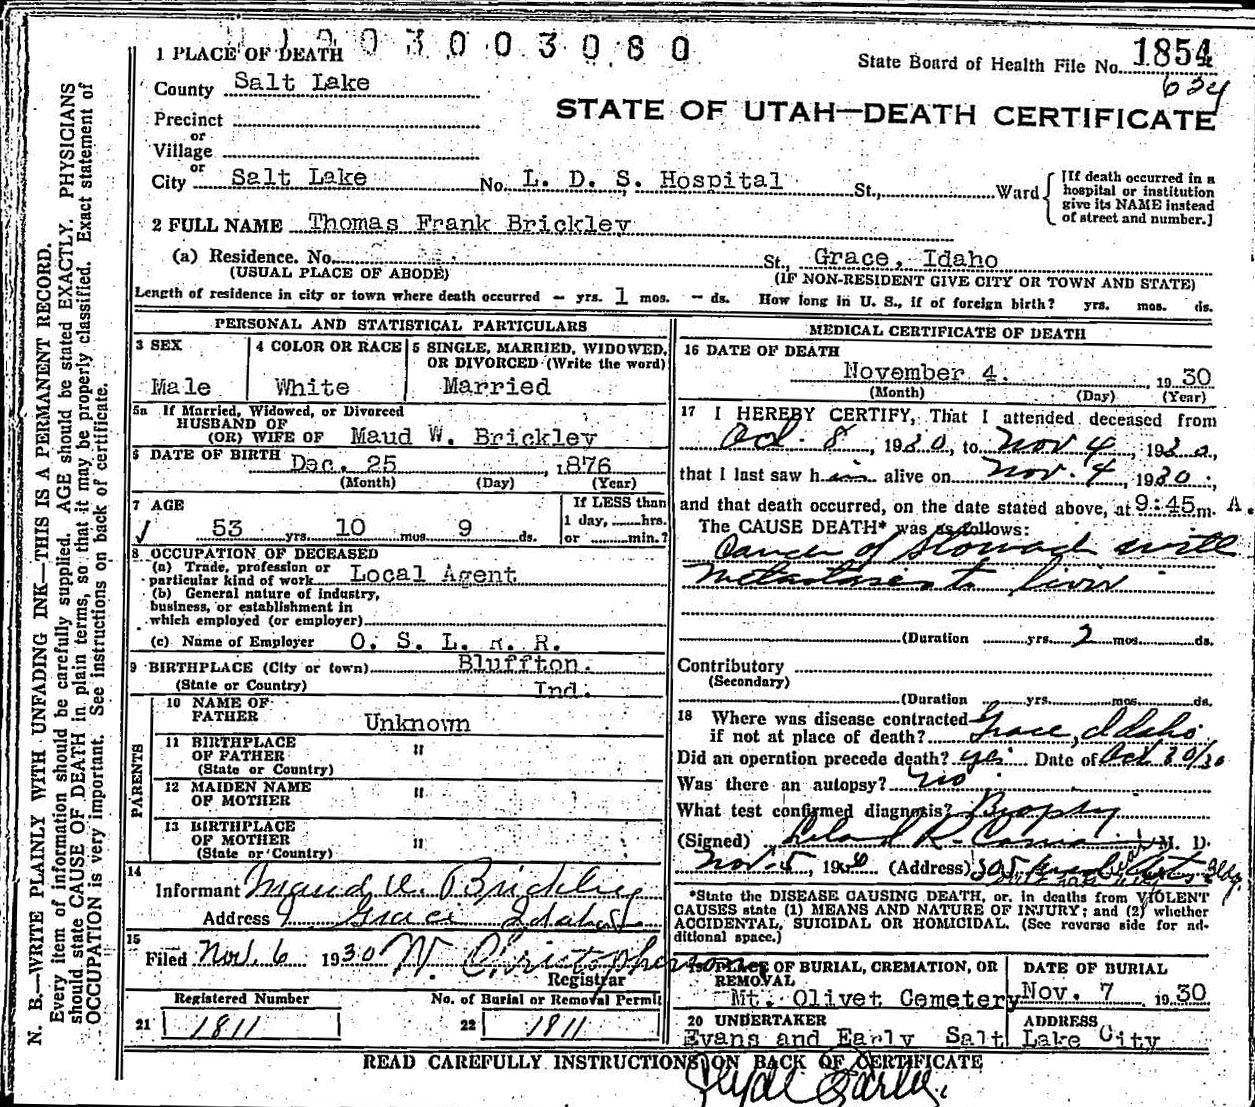 1003003080
1 PLACE OF DEATH
State Board of Health File No. 1854
634
County Salt Lake
STATE OF UTAH—DEATH CERTIFICATE
Precinct
or
Village
or
City Salt Lake No. L. D. S. Hospital St., Ward
[If death occurred in a
hospital or institution
give its NAME instead
of street and number.]
2 FULL NAME Thomas Frank Brickley
(a) Residence. No. St., Grace, Idaho
(USUAL PLACE OF ABODE) (IF NON-RESIDENT GIVE CITY OR TOWN AND STATE)
Length of residence in city or town where death occurred – yrs. 1 mos. – ds. How long in U. S., if of foreign birth? yrs. mos. ds.
PERSONAL AND STATISTICAL PARTICULARS
3 SEX
Male
4 COLOR OR RACE
White
5 SINGLE, MARRIED, WIDOWED,
OR DIVORCED (Write the word)
Married
5a If Married, Widowed, or Divorced
HUSBAND OF
(OR) WIFE OF Maud W. Brickley
6 DATE OF BIRTH Dec. 25, 1876
(Month) (Day) (Year)
7 AGE
53 yrs. 10 mos. 9 ds.
If LESS than
1 day, hrs.
or min.?
8 OCCUPATION OF DECEASED
(a) Trade, profession or
particular kind of work Local Agent
(b) General nature of industry,
business, or establishment in
which employed (or employer)
(c) Name of Employer O. S. L. R. R.
9 BIRTHPLACE (City or town) Bluffton.
(State or Country) Ind.
PARENTS
10 NAME OF
FATHER Unknown
11 BIRTHPLACE
OF FATHER "
(State or Country)
12 MAIDEN NAME
OF MOTHER "
13 BIRTHPLACE
OF MOTHER "
(State or Country)
14
Informant Maud W. Brickley
Address Grace Idaho
15
Filed Nov. 6 1930 W. Christopherson
Registrar
Registered Number
21 1811
No. of Burial or Removal Permit
22 1811
MEDICAL CERTIFICATE OF DEATH
16 DATE OF DEATH
November 4. , 1930
(Month) (Day) (Year)
17 I HEREBY CERTIFY, That I attended deceased from
Oct. 8, 1930, to Nov 4, 1930,
that I last saw him alive on Nov. 4, 1930.,
and that death occurred, on the date stated above, at 9:45 m. A.
The CAUSE DEATH* was as follows:
Cancer of Stomach with
metastases to liver
(Duration yrs. 2 mos. ds.
Contributory
(Secondary)
(Duration yrs. mos. ds.
18 Where was disease contracted
if not at place of death? Grace, Idaho
Did an operation precede death? yes Date of Oct 20/30
Was there an autopsy? no
What test confirmed diagnosis? Biopsy
(Signed) M. D.
Nov. 5 1930 (Address) 305 Bldg.
*State the DISEASE CAUSING DEATH, or, in deaths from VIOLENT
CAUSES state (1) MEANS AND NATURE OF INJURY; and (2) whether
ACCIDENTAL, SUICIDAL OR HOMICIDAL. (See reverse side for ad-
ditional space.)
19 PLACE OF BURIAL, CREMATION, OR
REMOVAL
Mt. Olivet Cemetery
DATE OF BURIAL
Nov. 7 1930
20 UNDERTAKER
Evans and Early Salt
ADDRESS
Lake City
READ CAREFULLY INSTRUCTIONS ON BACK OF CERTIFICATE
Clyde Early.
N. B.—WRITE PLAINLY WITH UNFADING INK—THIS IS A PERMANENT RECORD.
Every item of information should be carefully supplied. AGE should be stated EXACTLY. PHYSICIANS
should state CAUSE OF DEATH in plain terms, so that it may be properly classified. Exact statement of
OCCUPATION is very important. See instructions on back of certificate.